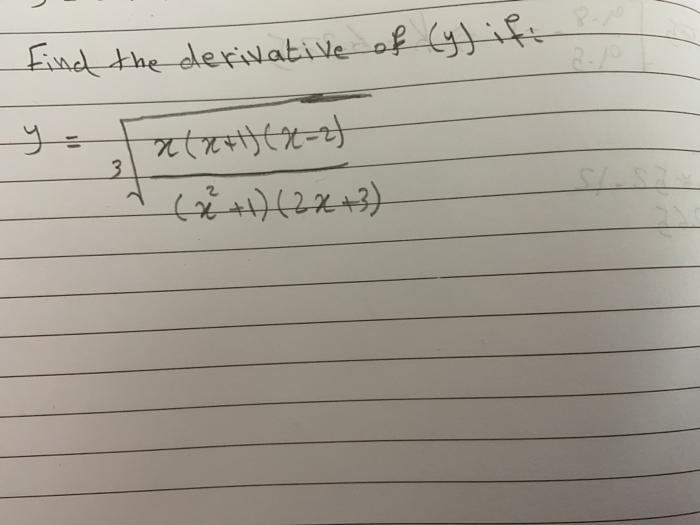 Find the derivative of (y) if:
y = ∛[x(x+1)(x-2) / (x²+1)(2x+3)]